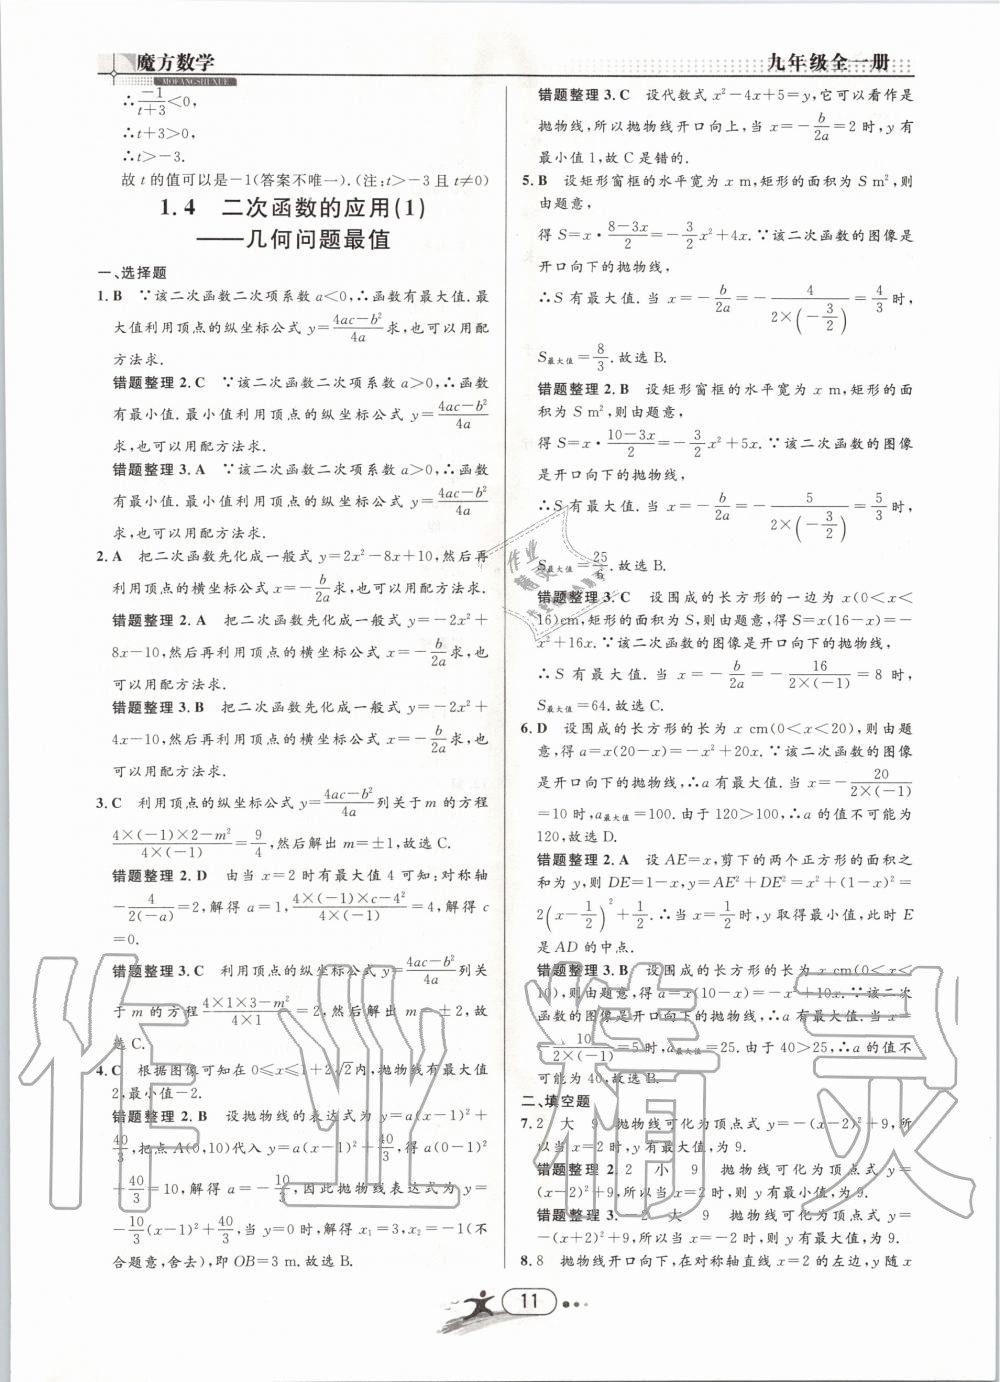 魔方数学
MOFANGSHUXUE
九年级全一册
∴$\frac{-1}{t+3}$<0,
∴t+3>0,
∴t>-3.
故 t 的值可以是-1(答案不唯一).(注:t>-3 且 t≠0)
1.4 二次函数的应用(1)
——几何问题最值
一、选择题
1.B ∵该二次函数二次项系数 a<0,∴函数有最大值.最
大值利用顶点的纵坐标公式 y=$\frac{4ac-b^2}{4a}$求,也可以用配
方法求.
错题整理 2.C ∵该二次函数二次项系数 a>0,∴函数
有最小值.最小值利用顶点的纵坐标公式 y=$\frac{4ac-b^2}{4a}$
求,也可以用配方法求.
错题整理 3.A ∵该二次函数二次项系数 a>0,∴函数
有最小值.最小值利用顶点的纵坐标公式 y=$\frac{4ac-b^2}{4a}$
求,也可以用配方法求.
2.A 把二次函数先化成一般式 y=2x²-8x+10,然后再
利用顶点的横坐标公式 x=-$\frac{b}{2a}$求,也可以用配方法求.
错题整理 2.A 把二次函数先化成一般式 y=-2x²+
8x-10,然后再利用顶点的横坐标公式 x=-$\frac{b}{2a}$求,也
可以用配方法求.
错题整理 3.B 把二次函数先化成一般式 y=-2x²+
4x-10,然后再利用顶点的横坐标公式 x=-$\frac{b}{2a}$求,也
可以用配方法求.
3.C 利用顶点的纵坐标公式 y=$\frac{4ac-b^2}{4a}$列关于 m 的方程
$\frac{4×(-1)×2-m^2}{4×(-1)}$=$\frac{9}{4}$,然后解出 m=±1,故选 C.
错题整理 2.D 由当 x=2 时有最大值 4 可知:对称轴
-$\frac{4}{2(-a)}$=2,解得 a=1,$\frac{4×(-1)×c-4^2}{4×(-1)}$=4,解得 c
=0.
错题整理 3.C 利用顶点的纵坐标公式 y=$\frac{4ac-b^2}{4a}$列关
于 m 的方程$\frac{4×1×3-m^2}{4×1}$=2,然后解出 m=±2,故
选 C.
4.C 根据图像可知在 0≤x≤1+2√2内,抛物线有最大值
2,最小值-2.
错题整理 2.B 设抛物线的表达式为 y=a(x-1)²+
$\frac{40}{3}$,把点 A(0,10)代入 y=a(x-1)²+$\frac{40}{3}$,得 a(0-1)²
+$\frac{40}{3}$=10,解得 a=-$\frac{10}{3}$,因此抛物线表达式为 y=
-$\frac{10}{3}$(x-1)²+$\frac{40}{3}$,当 y=0 时,解得 x₁=3,x₂=-1(不
合题意,舍去),即 OB=3 m.故选 B.
错题整理 3.C 设代数式 x²-4x+5=y,它可以看作是
抛物线,所以抛物线开口向上,当 x=-$\frac{b}{2a}$=2 时,y 有
最小值 1,故 C 是错的.
5.B 设矩形窗框的水平宽为 x m,矩形的面积为 S m²,则
由题意,
得 S=x·$\frac{8-3x}{2}$=-$\frac{3}{2}$x²+4x.∵该二次函数的图像是
开口向下的抛物线,
∴S 有最大值.当 x=-$\frac{b}{2a}$=-$\frac{4}{2×(-\frac{3}{2})}$=$\frac{4}{3}$时,
S最大值=$\frac{8}{3}$.故选 B.
错题整理 2.B 设矩形窗框的水平宽为 x m,矩形的面
积为 S m²,则由题意,
得 S=x·$\frac{10-3x}{2}$=-$\frac{3}{2}$x²+5x.∵该二次函数的图像
是开口向下的抛物线,
∴S 有最大值.当 x=-$\frac{b}{2a}$=-$\frac{5}{2×(-\frac{3}{2})}$=$\frac{5}{3}$时,
S最大值=$\frac{25}{6}$.故选 B.
错题整理 3.C 设围成的长方形的一边为 x(0<x<
16)cm,矩形的面积为 S,则由题意,得 S=x(16-x)=-
x²+16x.∵该二次函数的图像是开口向下的抛物线,
∴S 有最大值.当 x=-$\frac{b}{2a}$=-$\frac{16}{2×(-1)}$=8 时,
S最大值=64.故选 C.
6.D 设围成的长方形的长为 x cm(0<x<20),则由题
意,得 a=x(20-x)=-x²+20x.∵该二次函数的图像
是开口向下的抛物线,∴a 有最大值.当 x=-$\frac{20}{2×(-1)}$
=10 时,a最大值=100.由于 120>100,∴a 的值不可能为
120,故选 D.
错题整理 2.A 设 AE=x,剪下的两个正方形的面积之
和为 y,则 DE=1-x,y=AE²+DE²=x²+(1-x)²=
2(x-$\frac{1}{2}$)²+$\frac{1}{2}$.∴当 x=$\frac{1}{2}$时,y 取得最小值,此时 E
是 AD 的中点.
错题整理 3.B 设围成的长方形的长为 x cm(0<x<
10),则由题意,得 a=x(10-x)=-x²+10x.∵该二次
函数的图像是开口向下的抛物线,∴a 有最大值.当 x=
-$\frac{10}{2×(-1)}$=5 时,a最大值=25.由于 40>25,∴a 的值不
可能为 40,故选 B.
二、填空题
7.2 大 9 抛物线可化为顶点式 y=-(x-2)²+9,所
以当 x=2 时,y 有最大值,为 9.
错题整理 2.2 小 9 抛物线可化为顶点式 y=
(x-2)²+9,所以当 x=2 时,y 有最小值,为 9.
错题整理 3.-2 大 9 抛物线可化为顶点式 y=
-(x+2)²+9,所以当 x=-2 时,y 有最大值,为 9.
8.8 抛物线开口向下,在对称轴直线 x=2 的左边,y 随 x
11
作业精灵